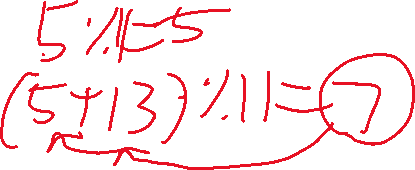 5%11=5
(5+13)%11=7